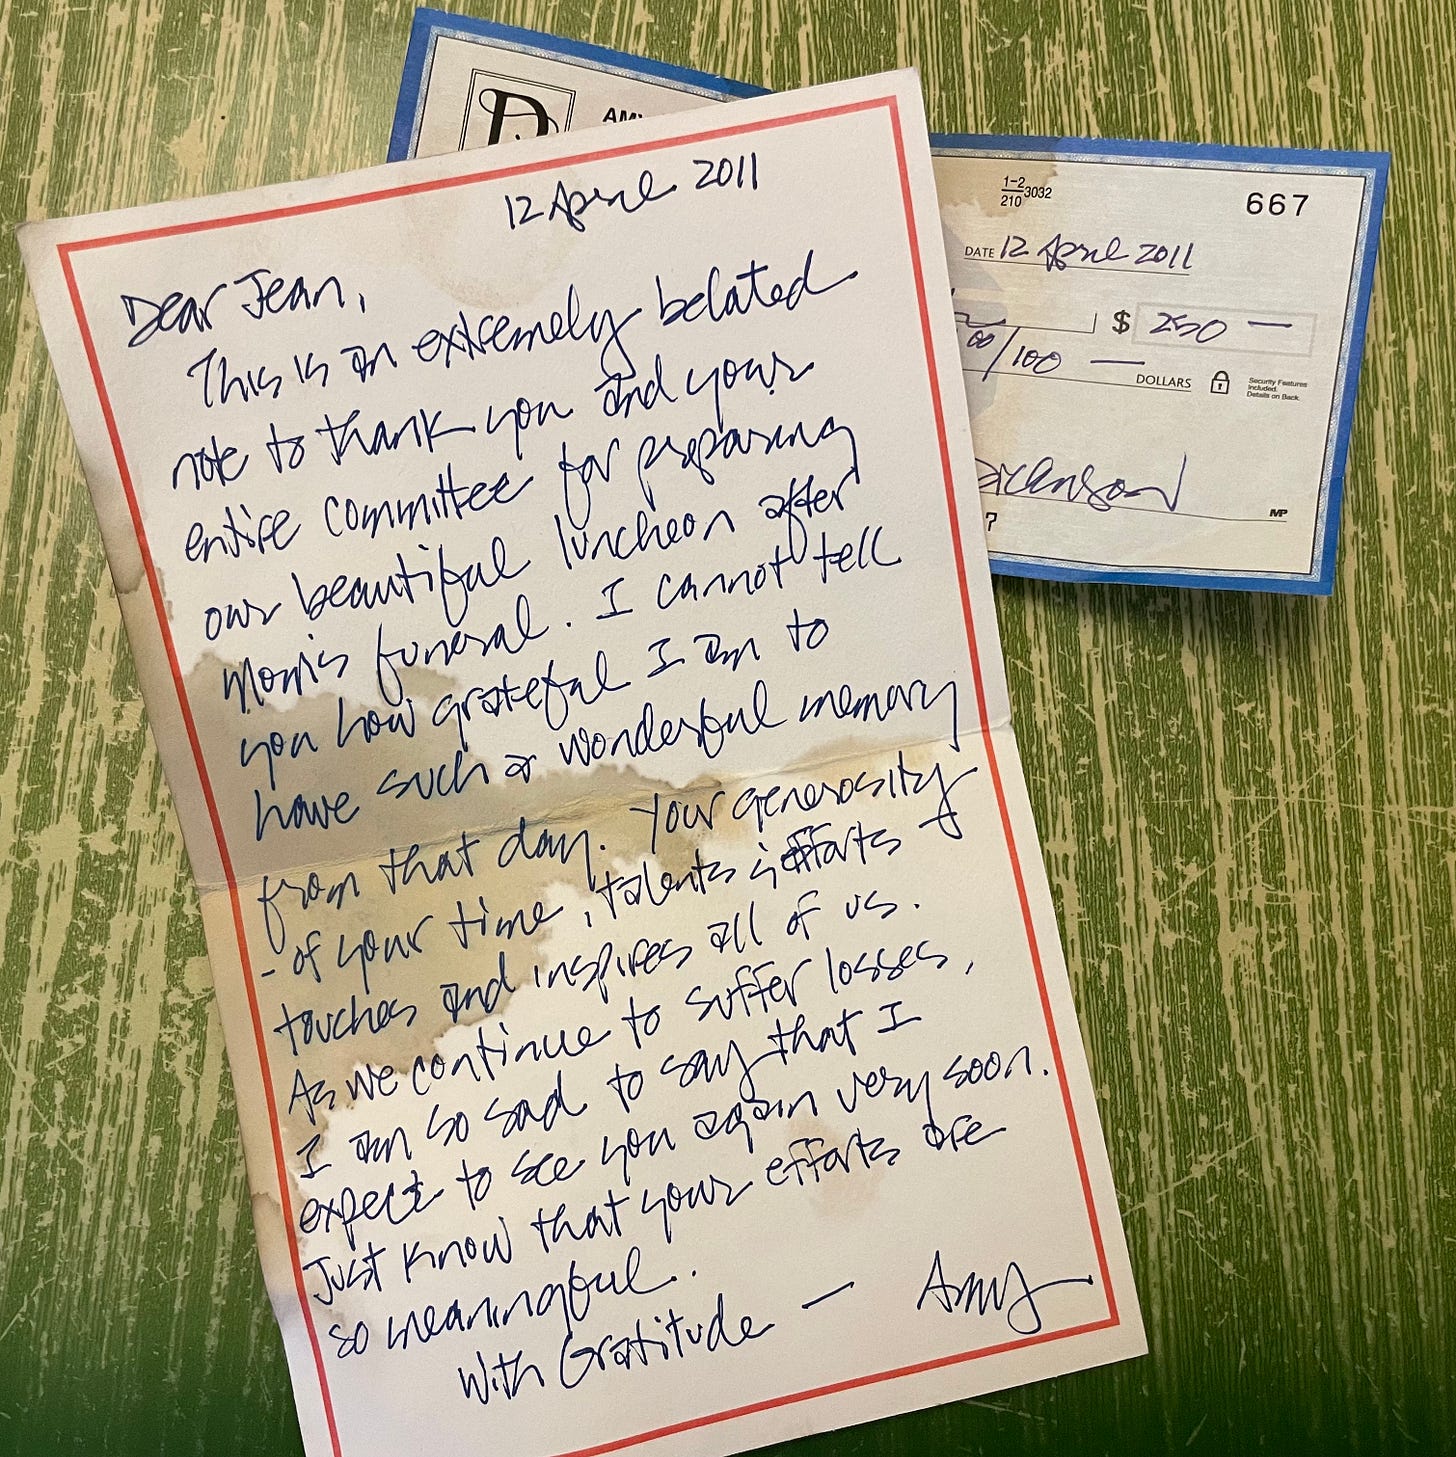 D
AM
1-2
210 3032
667
DATE 12 April 2011
$ 250 —
00/100 —
DOLLARS
Security Features
Included.
Details on Back.
Dickinson
MP
7
12 April 2011
Dear Jean,
This is an extremely belated
note to thank you and your
entire committee for preparing
our beautiful luncheon after
Mom's funeral. I cannot tell
you how grateful I am to
have such a wonderful memory
from that day. Your generosity
- of your time, talents & efforts -
touches and inspires all of us.
As we continue to suffer losses,
I am so sad to say that I
expect to see you again very soon.
Just know that your efforts are
so meaningful.
With Gratitude — Amy